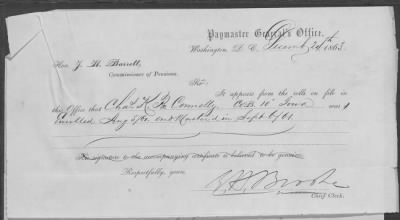 Paymaster General's Office,
Washington, D. C. Decemb 24th 1863.
Hon. J. H. Barrett,
Commissioner of Pensions.
Sir:
It appears from the rolls on file in
this Office that Chas. H. Connolly Co B. 10" Iowa was
Enrolled Aug 5/61 and Mustered in Sept 6/61
The signature to the accompanying certificate is believed to be genuine.
Respectfully, yours,
Chief Clerk.